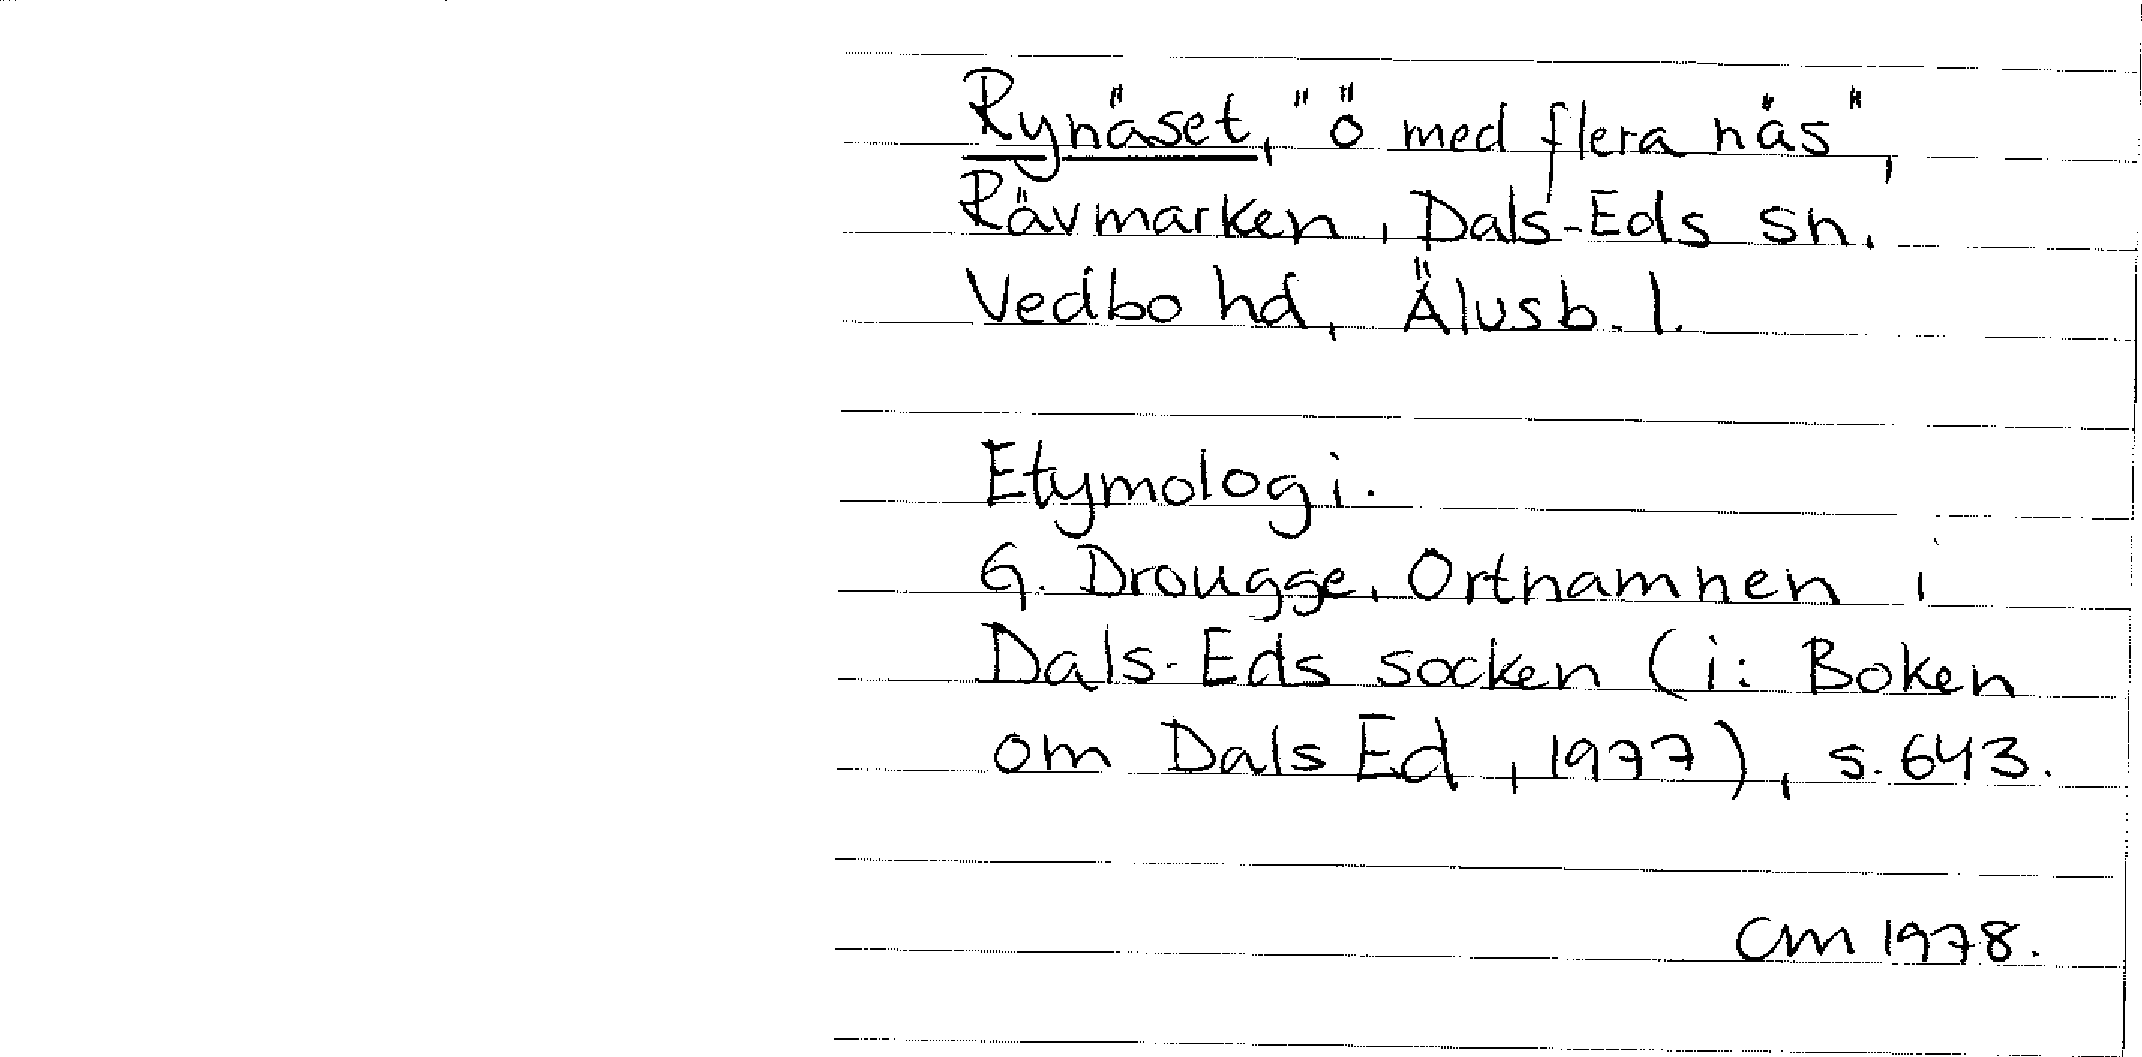 Rynäset, "ö med flera näs",
Rävmarken, Dals-Eds sn.
Vedbo hd, Älvsb. l.
Etymologi.
G. Drougge, Ortnamnen i
Dals-Eds socken (i: Boken
om Dals Ed, 1977), s. 643.
CM 1978.